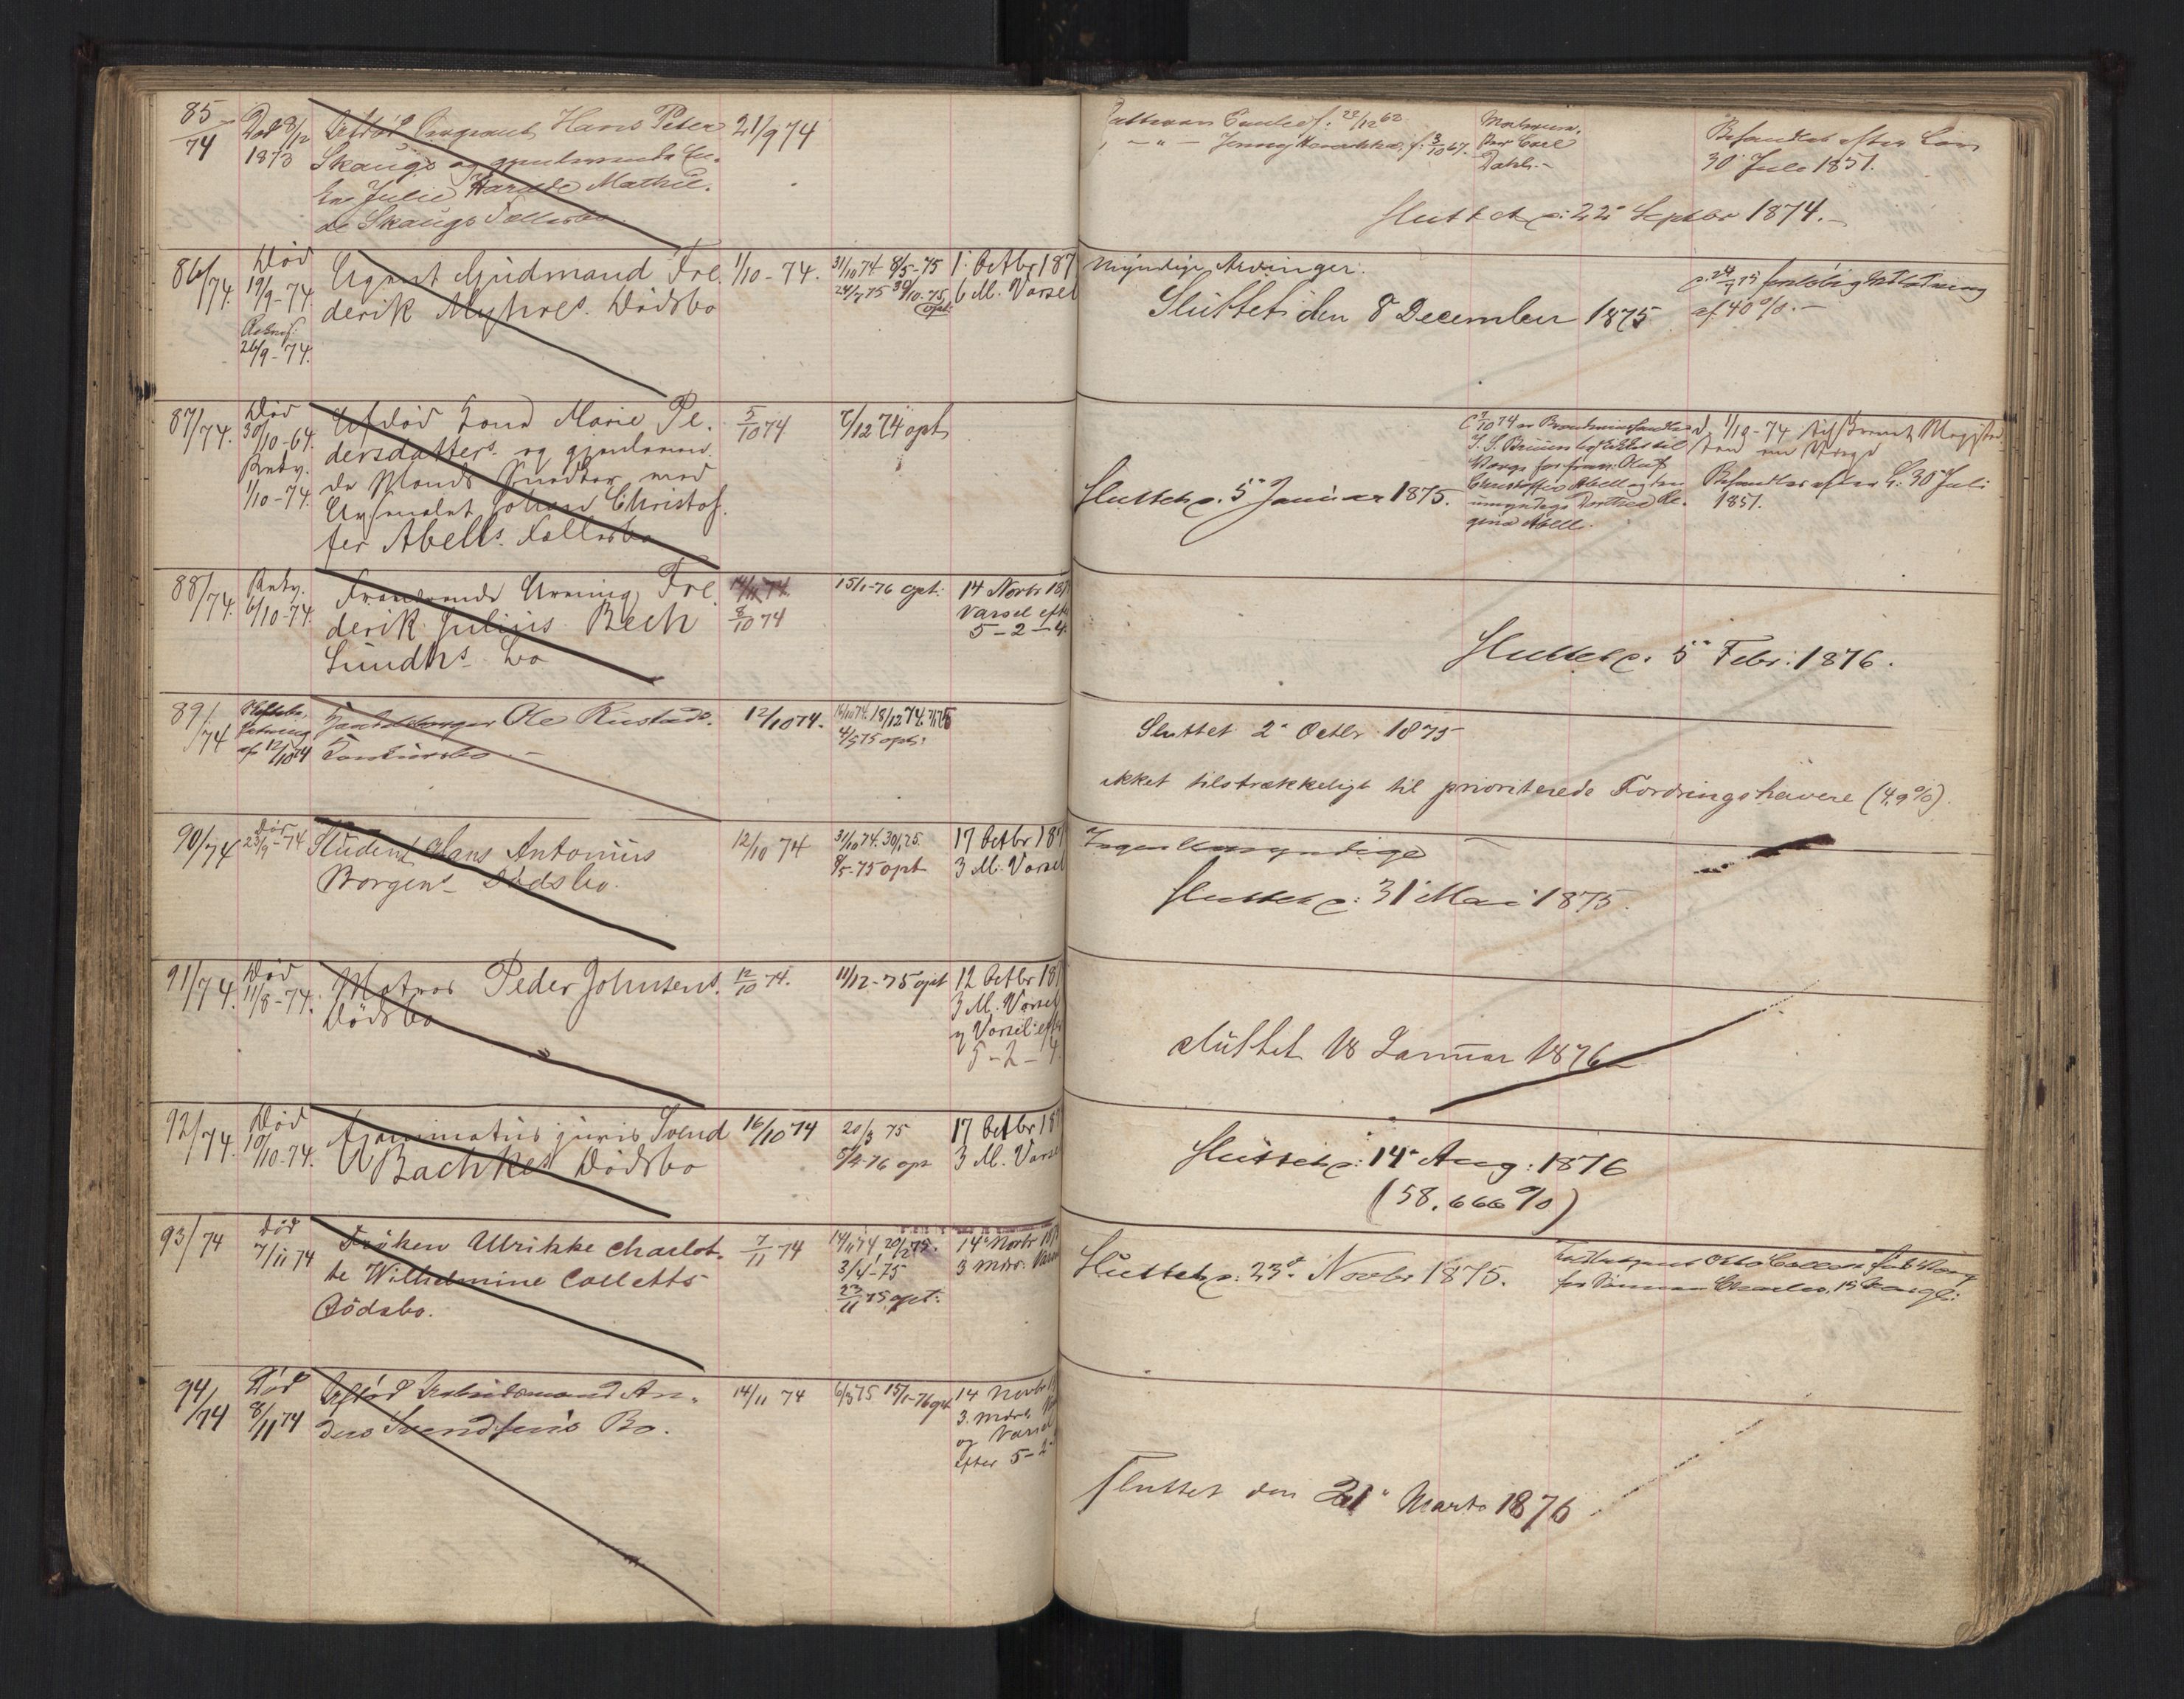 85/74
Død 8/12
1873
Afdød Sergeant Hans Peter
Skaugs og gjenlevende En-
ke Julie Mathil-
de Skaugs Fællesbo
21/9 74
f. 22/12 62
Jenny f. 3/10 67.
Carl
Dahl.
Behandles efter Lov
30 Juli 1851.
Sluttet d: 22 Septbr 1874.
86/74.
Død
19/9-74.
26/9-74.
Agent Gudmand Fre-
derik Myhres Dødsbo
1/10-74.
31/10 74 8/5-75
24/7 75 30/10-75
opt
1 Octbr 187
6 M. Varsel
Myndige Arvinger.
Sluttet den 8 December 1875
af 40 %.
87/74.
Død
30/10-64.
1/10-74.
Afdød Kone Marie Pe-
dersdatters og gjenleven-
de Mands Johan Christof-
fer Abells Fællesbo
5/10 74
7/12 74 opt
Sluttet d. 5 Januar 1875.
Værge for
Christoffer Abell og den
umyndige Re-
gine Abell.
Behandles efter L. 30 Juli
1851.
88/74.
6/10-74.
Fraværende Arving Fre-
derik Julius Bech
Lunds Bo
14/11 74.
8/10 74
15/1-76 opt:
14 Novbr 187
Varsel eft
5-2-4.
Sluttet d. 5 Febr: 1876.
89/74
af 12/10 74
Handelsborger Ole Rustads
Konkursbo
12/10 74.
16/10 74. 18/12 74.
4/5 75 opt:
Sluttet 2 Octbr 1875
ikket tilstrækkeligt til prioriterede Fordringshavere (4,9%).
90/74
Død
23/9-74
Student Hans Antonius
Borgens Dødsbo.
12/10 74
31/10 74. 30/1 75.
8/5-75 opt
17 Octbr 187
3 M. Varsel
Ingen Umyndige
Sluttet d: 31 Mai 1875.
91/74.
Død
11/8-74.
Matros Peder Johnsens
Dødsbo
12/10 74.
11/12-75 opt
12 Octbr 187
3 M. Varsel
og Varsel eft
5-2-4
sluttet 18 Januar 1876
92/74.
Død
10/10-74.
Examinatus juris Svend
A Bachkes Dødsbo
16/10 74
20/3 75
5/2-76 opt
17 Octbr 187
3 M. Varsel
Sluttet d: 14 Aug: 1876
(58.666%)
93/74
Død
7/11 74
Frøken Ulrikke Charlot-
te Wilhelmine Colletts
Dødsbo.
7/11 74
14/11 74 20/1 75.
3/4-75
23/11 75 opt:
14 Novbr 187
3 Mdrs: Varsel
Sluttet d: 23 Novbr 1875.
Otto Collett
for Sønnen Charles, 15
94/74
Død
8/11 74
Afdød Arbeidsmand An-
ders Svendsens Bo.
14/11 74
6/3 75 15/1-76 opt
14 Novbr
3. Mdrs
og Varsel
efter 5-2-
Sluttet den 21 Marts 1876